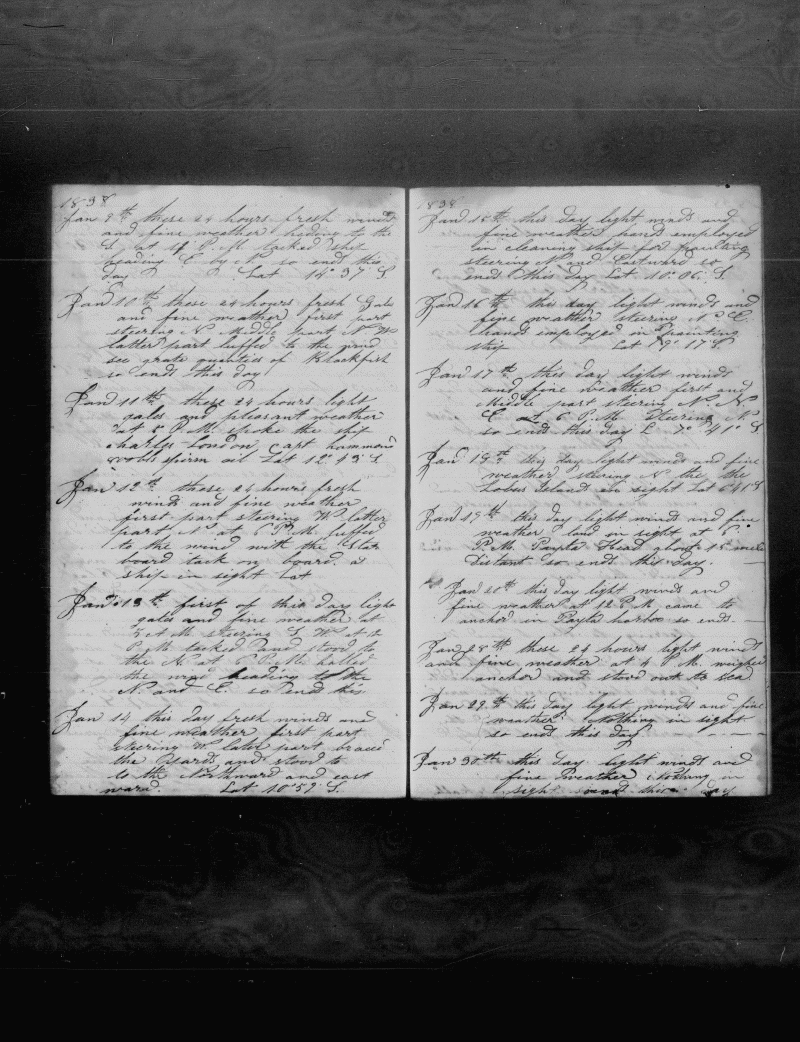 1838
Jan 9th these 24 hours fresh winds
and fine weather heading to the
S at 4 P.M tacked ship
heading E by N so ends this
day Lat 14° 37' S
Jan 10th these 24 hours fresh Gales
and fine weather first part
steering N Middle part N W
latter part luffed to the wind
see grate quanties of Blackfish
so ends this day
Jan 11th these 24 hours light
gales and pleasant weather
at 5 P.M. spoke the ship
charles London capt hammond
sperm oil Lat 12° 43' S
Jan 12th these 24 hours fresh
winds and fine weather
first part steering W latter
part N at 6 P.M. luffed
to the wind with the Star
board tack on board. a
ship in sight Lat
Jan 13th first of this day light
gales and fine weather at
5 A M steering S W at 12
P.M tacked and stood to
the N at 6 P.M. halled
the wind heading to the
N and E so ends this
Jan 14 this day fresh winds and
fine weather first part
steering W later part braced
the Yards and stood to
to the Northward and east
ward. Lat 10° 59' S.
1838
Jan 15th this day light winds and
fine weather hands employed
in cleaning ship for painting
steering N and Eastward so
ends this day Lat 10° 06' S
Jan 16th this day light winds and
fine weather steering N E
hands employed in painting
ship Lat 9° 17' S
Jan 17th this day light winds
and fine weather first and
Middle part steering N N
E at 6 P.M. Steering N
so ends this day L 7° 41' S
Jan 18th this day light winds and fine
weather steering N the the
Lobus Islands in sight Lat 6 41 S
Jan 19th this day light winds and fine
weather land in sight at 6
P.M. Payta Head about 15 miles
Distant so ends this day.
Jan 20th this day light winds and
fine weather at 12 P M came to
anchor in Payta harbor so ends.
Jan 28th these 24 hours light winds
and fine weather at 4 P.M. weighed
anchor and stood out to sea
Jan 29th this day light winds and fine
weather nothing in sight
so ends this day
Jan 30th this day light winds and
fine weather nothing in
sight so ends this day